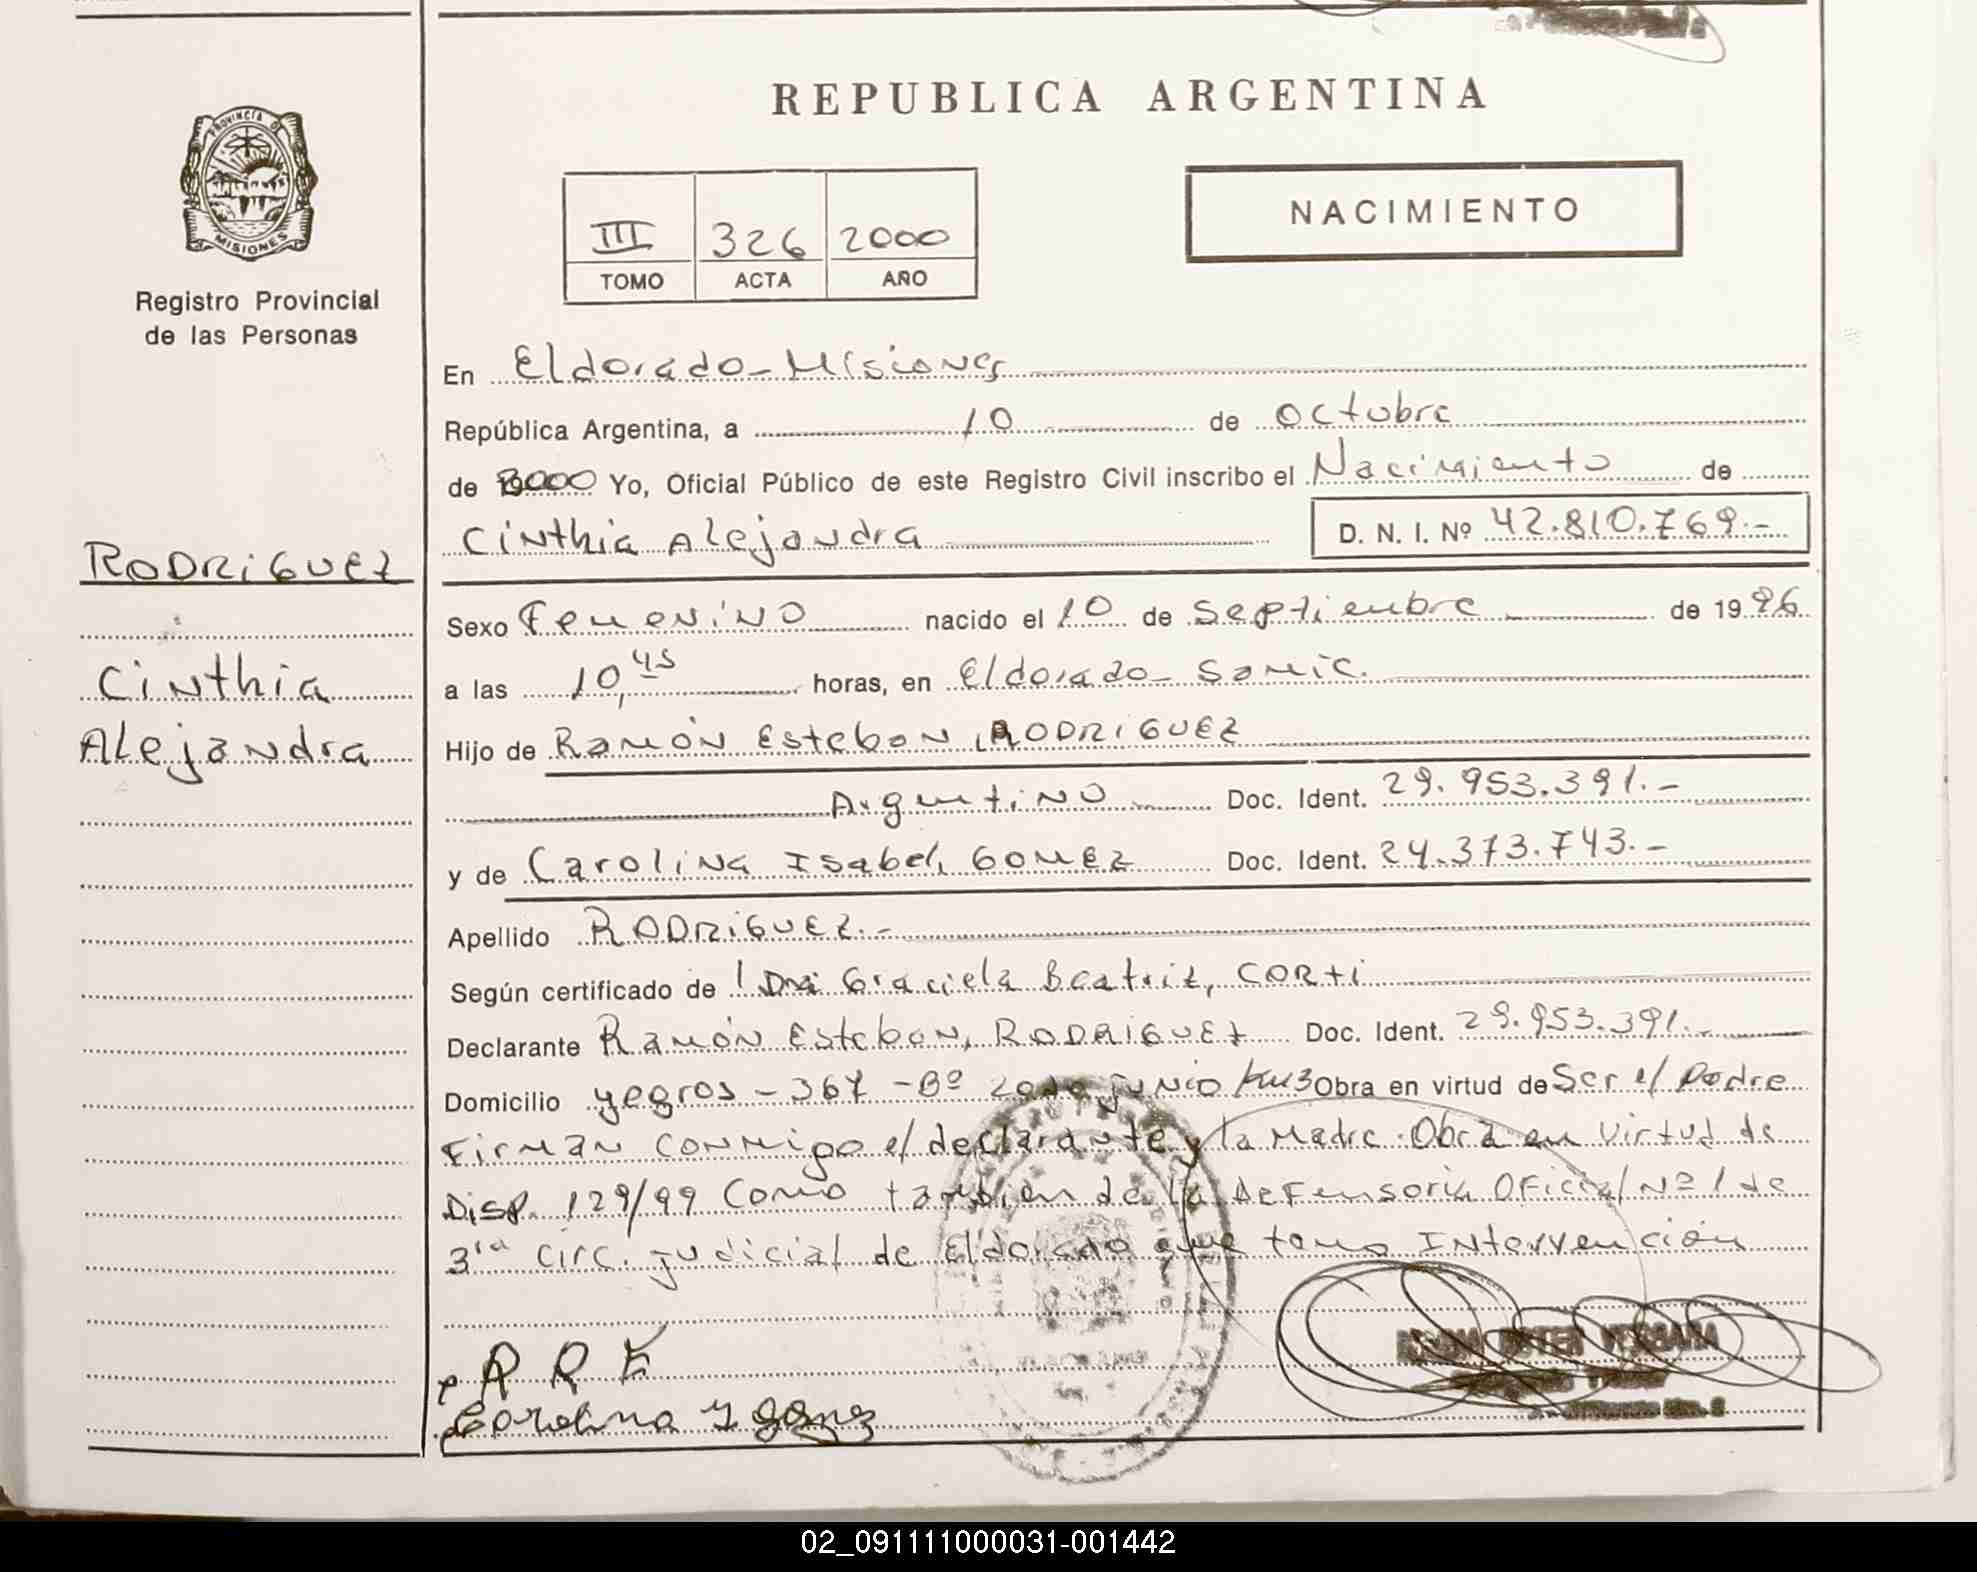 REPUBLICA ARGENTINA
PROVINCIA DE
MISIONES
Registro Provincial
de las Personas
III 326 2000
TOMO ACTA AÑO
NACIMIENTO
En Eldorado - Misiones
República Argentina, a 10 de octubre
de 2000 Yo, Oficial Público de este Registro Civil inscribo el Nacimiento de
Cinthia Alejandra D. N. I. Nº 42.810.769.-
RODRIGUEZ
Cinthia
Alejandra
Sexo Femenino nacido el 10 de Septiembre de 1996
a las 10,45 horas, en Eldorado - Samic.
Hijo de Ramón Esteban, RODRIGUEZ
Argentino Doc. Ident. 29.953.391.-
y de Carolina Isabel, GOMEZ Doc. Ident. 24.373.743.-
Apellido RODRIGUEZ.-
Según certificado de Dra Graciela Beatriz, CORTI
Declarante Ramón Esteban, RODRIGUEZ Doc. Ident. 29.953.391.-
Domicilio yegros - 367 - Bº 20 de junio Km3 Obra en virtud de Ser el Padre
Firman conmigo el declarante y la Madre. Obra en Virtud de
Disp. 129/99 Como tambien de la Defensoria Oficial Nº 1 de
3ra Circ. judicial de Eldorado que tomo Intervención
R R E
Carolina I gomez
VERGARA
02_091111000031-001442